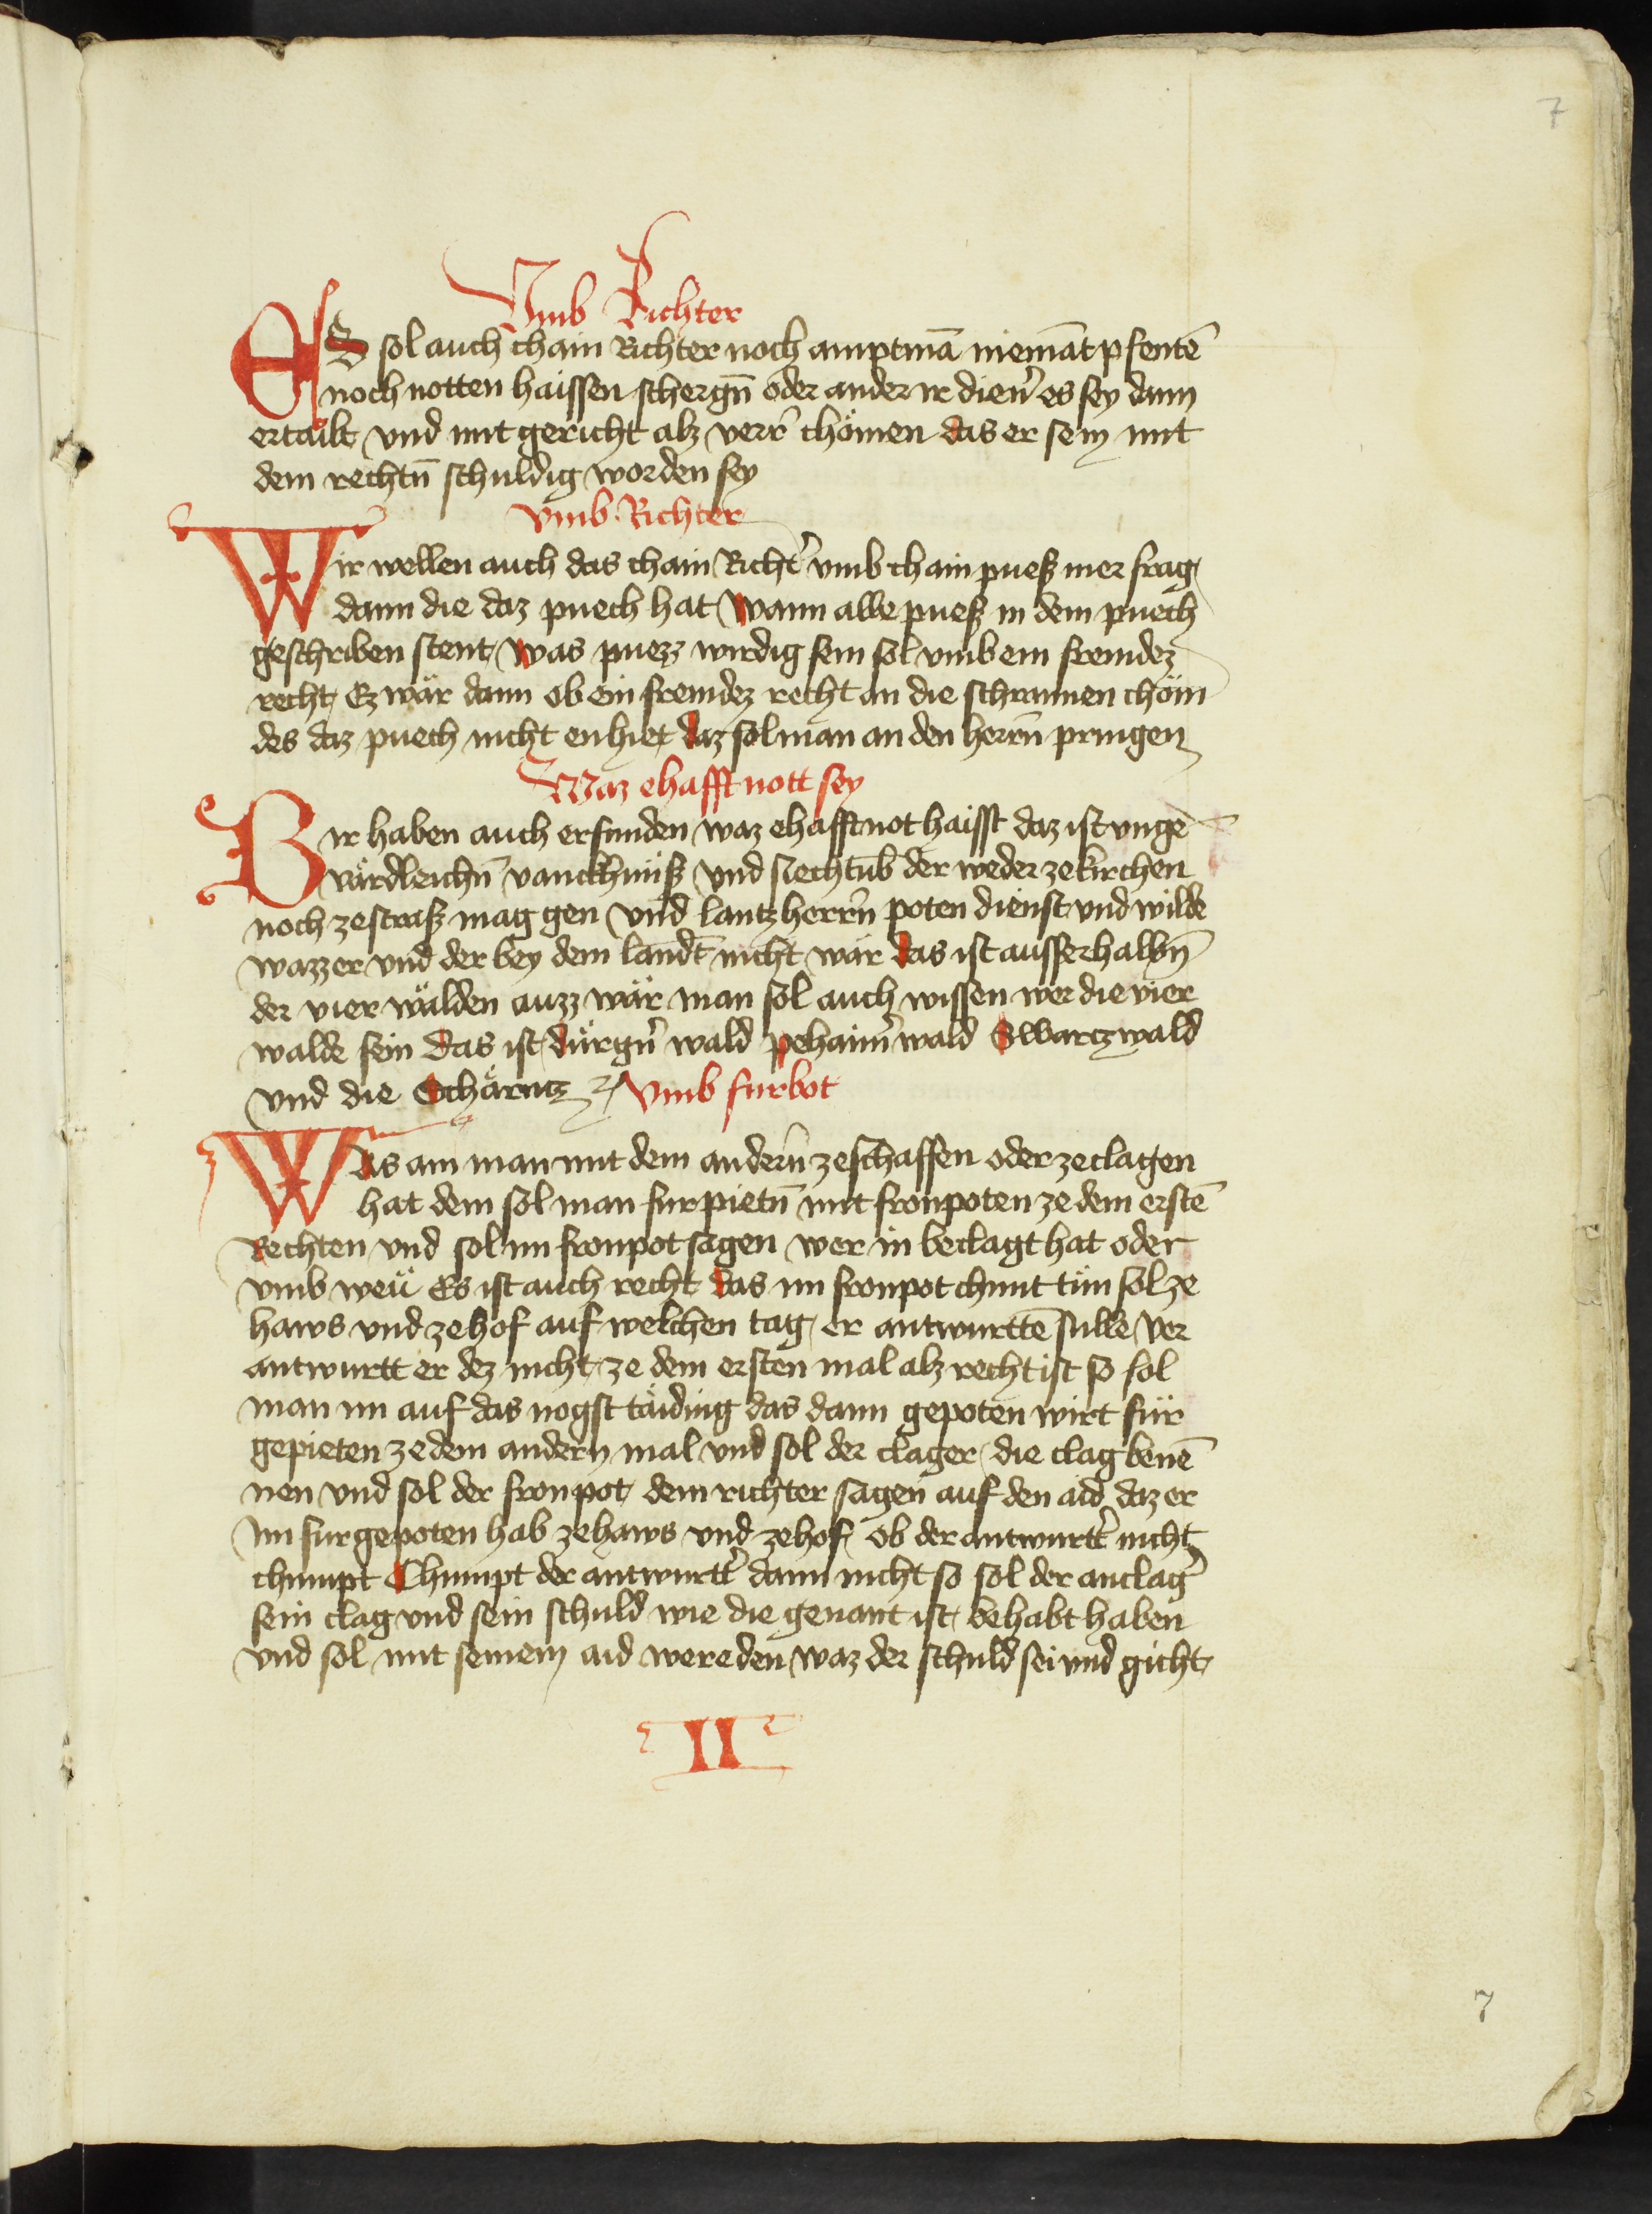 7
Vmb Richter
ES sol auch chain Richter noch amptmā niemāt pfentē
noch notten haissen schergn̄ oder ander ir dien̕ es sey dann
ertailt vnd mit gericht alz verr̕ chömen das er sein mit
dem rechtn̄ schuldig worden sey
Vmb Richter
Wir wellen auch das chain Richt̕ vmb chain puesz mer frag
dann die daz puech hat Wann alle puesz in dem puech
geschriben stent, Was puezz wirdig sein sol vmb ein fremdez
recht, Ez wär dann ob ein fremdez recht an die schrannen chöm
des daz puech nicht enhiet daz sol man an den herrn̄ pringen
Waz ehafft nott sey
Wir haben auch erfunden waz ehafftnot haisst daz ist vnge
värdleichn̄ vanckhnüsz vnd siechtūb der weder ze kirchen
noch ze strasz mag gen vnd lantzherrn̄ poten dienst vnd wilde
wazzer vnd der bey dem landt nicht wär das ist ausserhalbn̄
der vier wälden auzz wär man sol auch wissen wer die vier
walde sein Das ist, dürgn̕ wald pehaim̕ wald Swartzwald
vnd die Schärntz Vmb furbot
Was ain man mit dem andern̄ ze schaffen oder ze clagen
hat dem sol man furpietn̄ mit fronpoten ze dem erstē
Rechten vnd sol im fronpot sagen wer in beclagt hat oder
vmb weü Es ist auch recht das im fronpot chunt tün sol ze
haws vnd ze hof auf welchen tag, er antwurttē sulle Ver
antwurtt er dez nicht, ze dem ersten mal alz recht ist so sol
man im auf das nogst täiding das dann gepoten wirt für
gepieten ze dem andern mal vnd sol der clager, die clag benē
nen vnd sol der fronpot, dem richter sagen auf den aid daz er
Im furgepoten hab ze haws vnd ze hof, ob der antwurtt̕ nicht
chumpt Chumpt der antwurtt̕ dann nicht so sol der anclag̕
sein clag vnd sein schuld wie die genant ist, behabt haben
vnd sol mit seinem aid wereden waz der schuld sei vnd gicht,
II
7